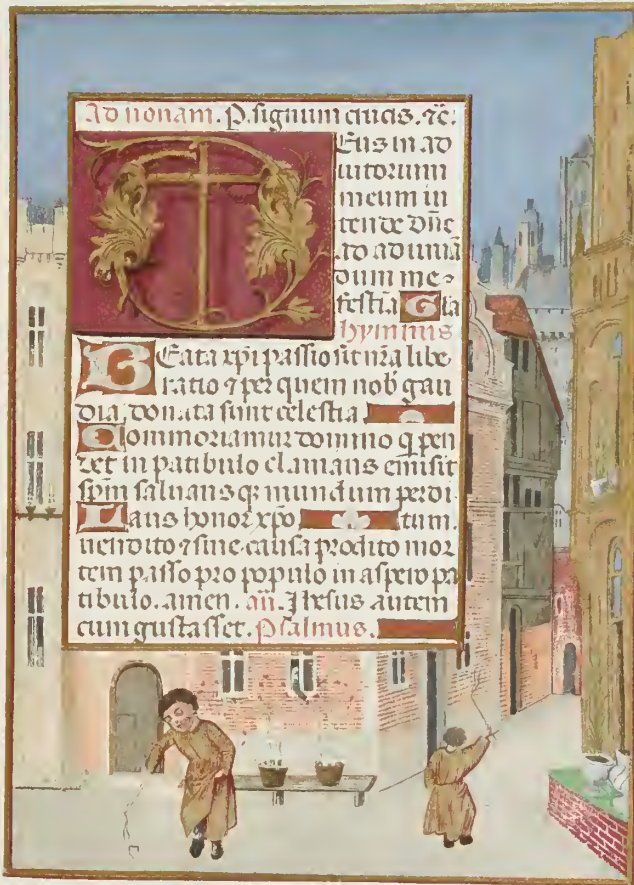 Ad nonam. P. signum crucis. ⁊c̄.
Deus in ad
iutorium
meum in
tende dn̄e
ad adiuuā
dum me
festīa Gla
hymnus
Beata xp̄i passio sit nr̄a libe
ratio ⁊ per quem nob̄ gau
dia, donata sunt celestia
Commoriamur domino q̄ pen
det in patibulo clamans emisit
sp̄m saluans q̄ mundum perdi
Laus honor xp̄o tum.
uendito ⁊ sine causa prodito mor
tem passo pro populo in aspero pa
tibulo. amen. añ. Jhesus autem
cum gustasset. Psalmus.